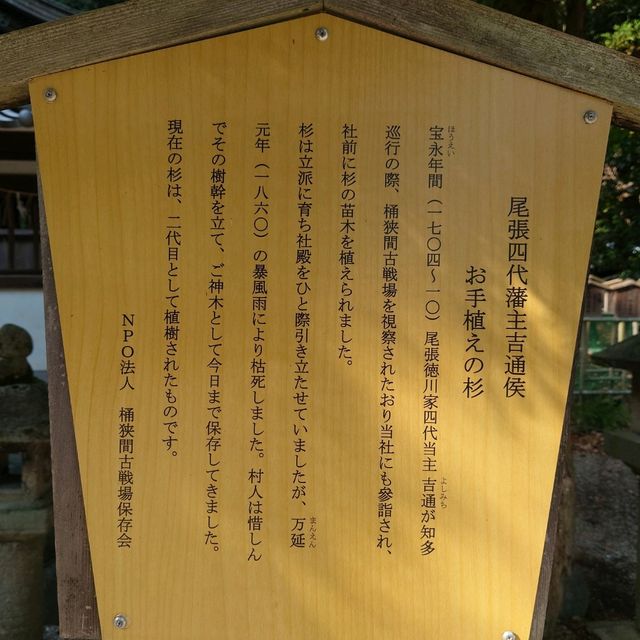 尾張四代藩主吉通侯
お手植えの杉
宝永年間（一七〇四～一〇）尾張徳川家四代当主 吉通が知多
ほうえい
よしみち
巡行の際、桶狭間古戦場を視察されたおり当社にも参詣され、
社前に杉の苗木を植えられました。
杉は立派に育ち社殿をひと際引き立たせていましたが、万延
まんえん
元年（一八六〇）の暴風雨により枯死しました。村人は惜しん
でその樹幹を立て、ご神木として今日まで保存してきました。
現在の杉は、二代目として植樹されたものです。
NPO法人 桶狭間古戦場保存会